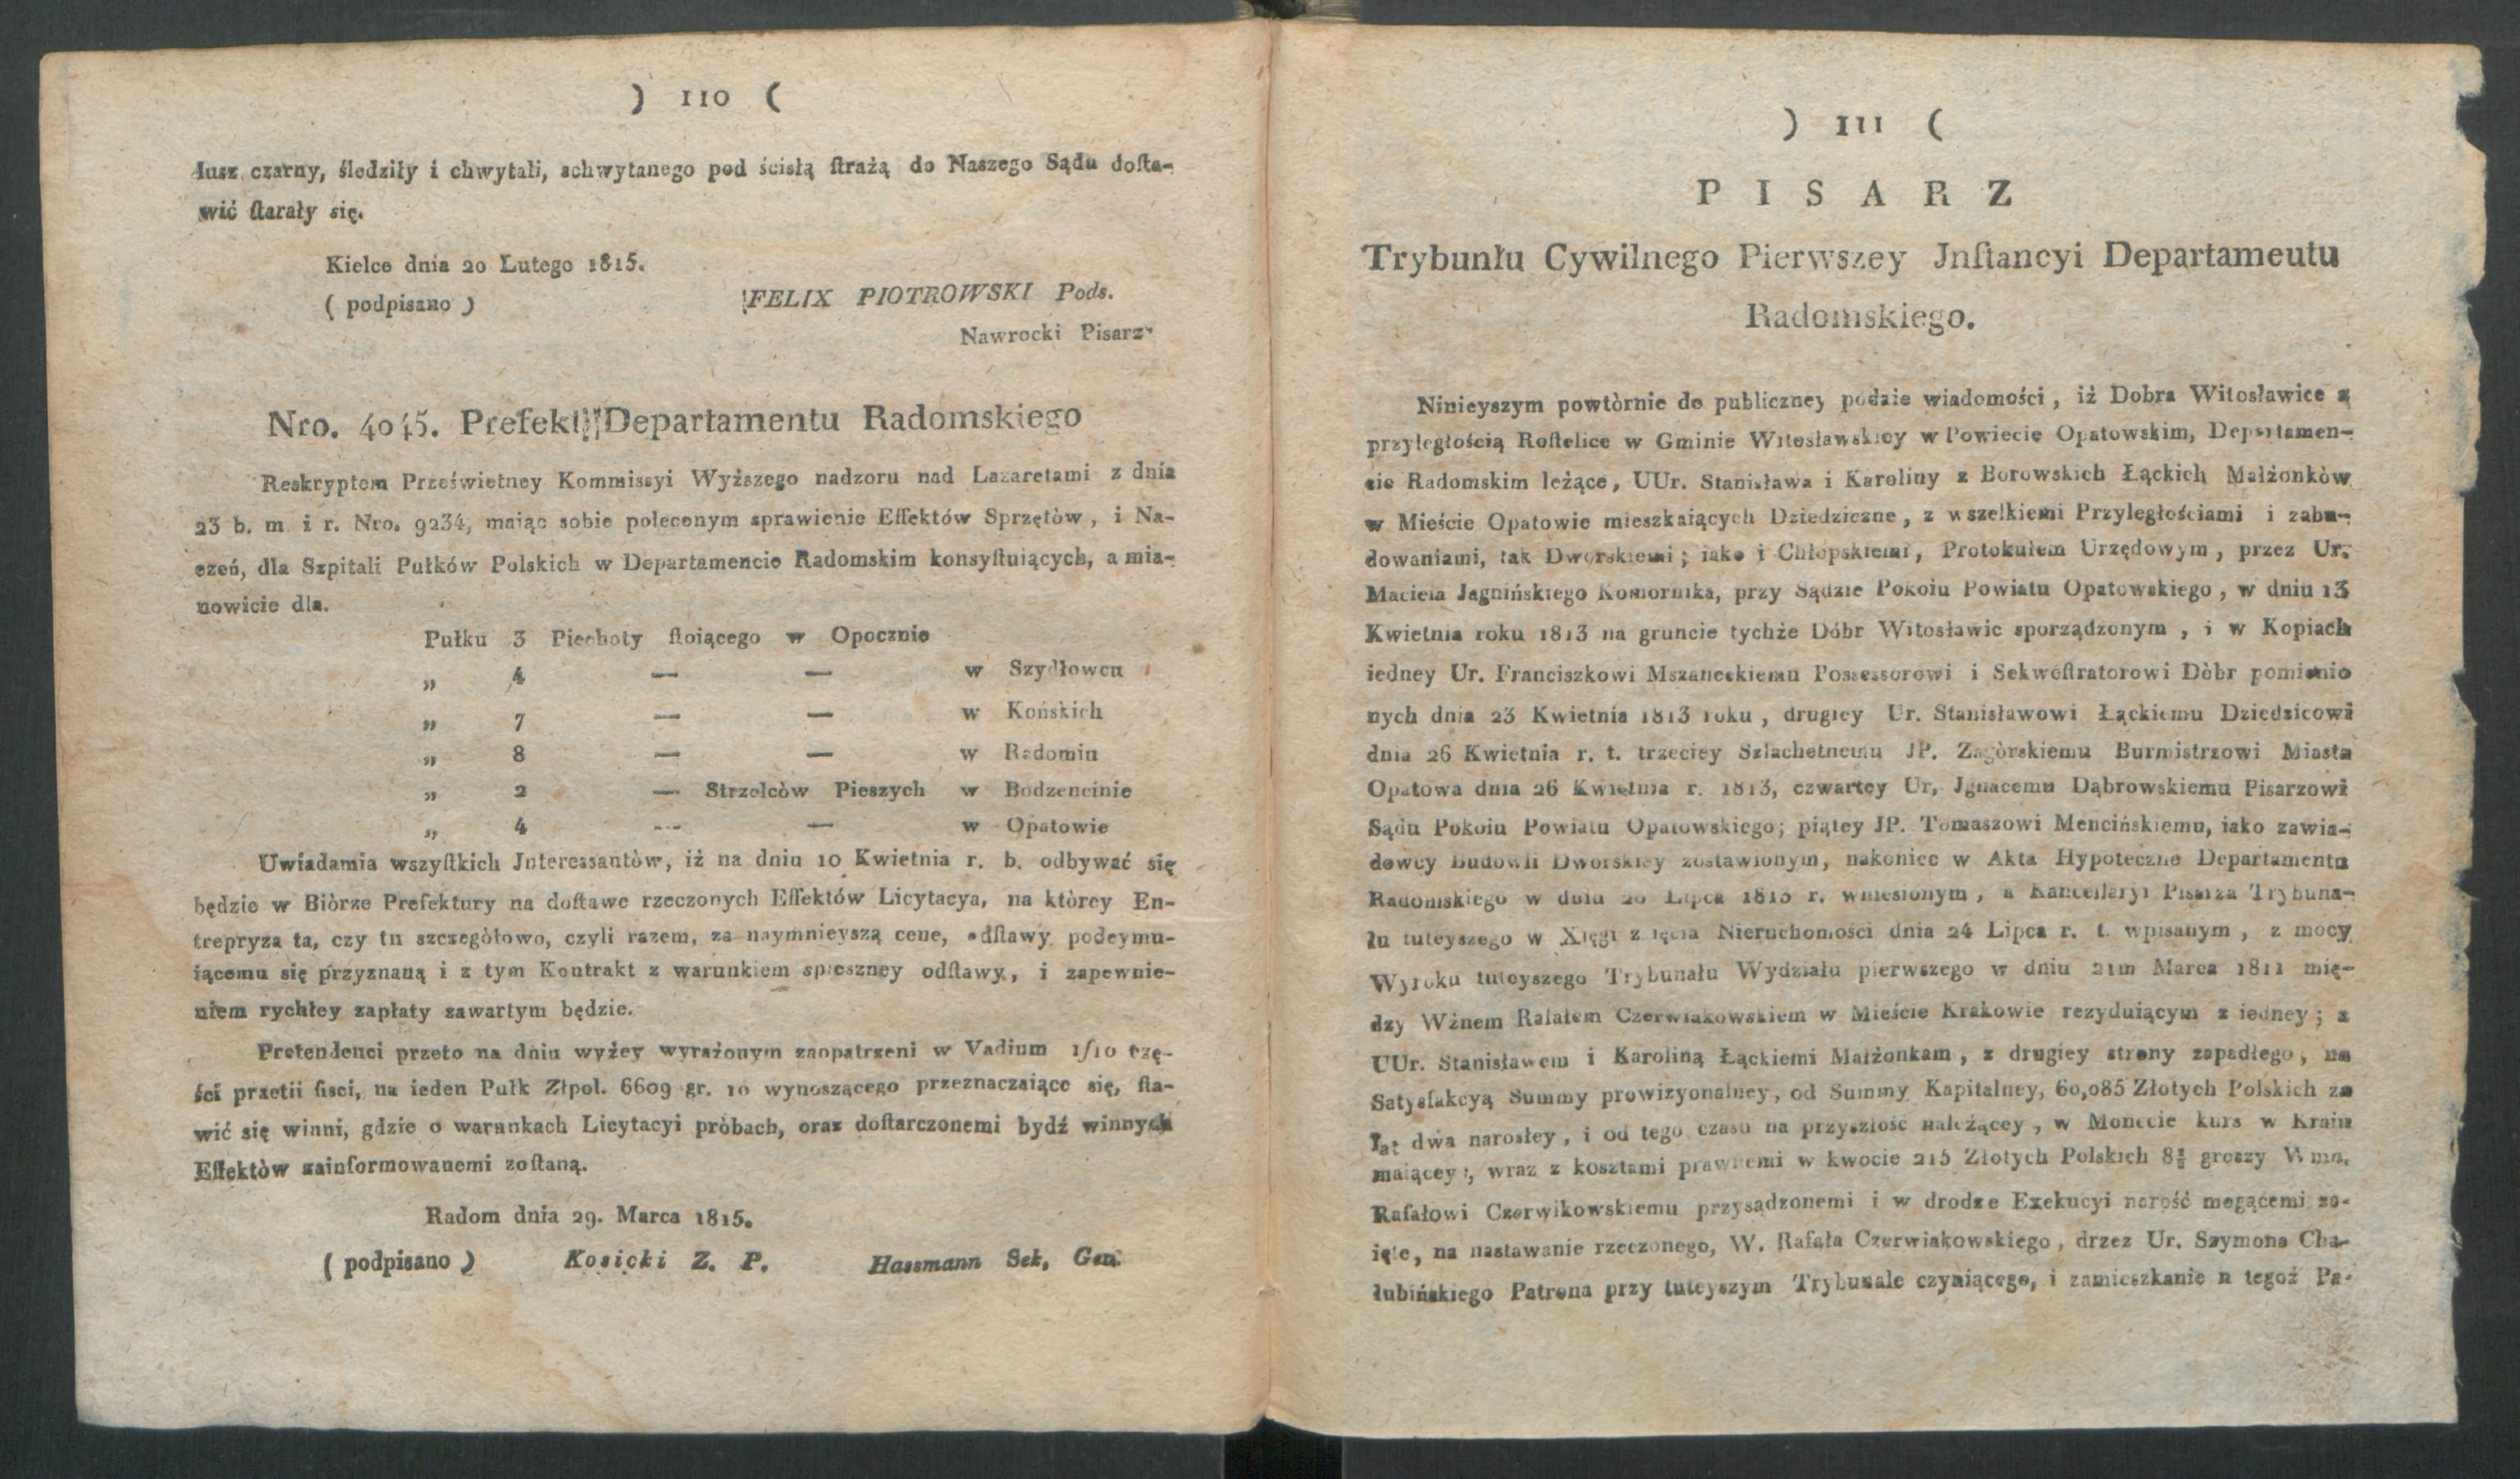 ) 110 (
łusz czarny, śledziły i chwytali, schwytanego pod ścisłą ſtrażą do Naszego Sądu doſta-
wić ſtarały się.
Kielce dnia 20 Lutego 1815.
( podpisano ) FELIX PIOTROWSKI Pods.
Nawrocki Pisarz
Nro. 4045. Prefekt Departamentu Radomskiego
Reskryptem Prześwietney Kommissyi Wyższego nadzoru nad Lazaretami z dnia
23 b. m i r. Nro. 9234, maiąc sobie poleconym sprawienie Effektów Sprzętòw, i Na-
czeń, dla Szpitali Pułków Polskich w Departamencie Radomskim konsyſtuiących, a mia-
nowicie dla.
Pułku 3 Piechoty ſtoiącego w Opocznie
„ 4 — — w Szydłowcu
„ 7 — — w Końskich
„ 8 — — w Radomiu
„ 2 — Strzelców Pieszych w Bodzencinie
„ 4 — — w Opatowie
Uwiadamia wszyſtkich Jnteressantòw, iż na dniu 10 Kwietnia r. b. odbywać się
będzie w Biòrze Prefektury na doſtawe rzeczonych Effektów Licytacya, na którey En-
trepryza ta, czy tu szczegòłowo, czyli razem, za naymnieyszą cene, odſtawy podeymu-
iącemu się przyznaną i z tym Kontrakt z warunkiem spieszney odſtawy, i zapewnie-
niem rychłey zapłaty zawartym będzie.
Pretendenci przeto na dniu wyżey wyrażonym zaopatrzeni w Vadium 1/10 czę-
ści prætii fisci, na ieden Pułk Złpol. 6609 gr. 10 wynoszącego przeznaczaiące się, ſta-
wić się winni, gdzie o warunkach Licytacyi pròbach, oraz doſtarczonemi bydź winnych
Effektòw zainformowanemi zoſtaną.
Radom dnia 29. Marca 1815.
( podpisano ) Kosicki Z. P. Hassmann Sek, Gen.
) 111 (
PISARZ
Trybunłu Cywilnego Pierwszey Jnſtancyi Departameutu
Radomskiego.
Ninieyszym powtòrnie do publiczney podaie wiadomości, iż Dobra Witosławice z
przyległością Roſtelice w Gminie Witosławskiey w Powiecie Opatowskim, Departamen-
cie Radomskim leżące, UUr. Stanisława i Karoliny z Borowskich Łąckich Małżonków
w Mieście Opatowie mieszkaiących Dziedziczne, z wszelkiemi Przyległościami i zabu-
dowaniami, tak Dworskiemi; iako i Chłopskiemi, Protokułem Urzędowym, przez Ur.
Macieia Jagnińskiego Komornika, przy Sądzie Pokoiu Powiatu Opatowskiego, w dniu 13
Kwietnia roku 1813 na gruncie tychże Dóbr Witosławic sporządzonym, i w Kopiach
iedney Ur. Franciszkowi Mszaneckiemu Possessorowi i Sekweſtratorowi Dòbr pomienio
nych dnia 23 Kwietnia 1813 roku, drugiey Ur. Stanisławowi Łąckiemu Dziedzicowi
dnia 26 Kwietnia r. t. trzeciey Szlachetnemu JP. Zagòrskiemu Burmistrzowi Miasta
Opatowa dnia 26 Kwietnia r. 1813, czwartey Ur, Jgnacemu Dąbrowskiemu Pisarzowi
Sądu Pokoiu Powiatu Opatowskiego; piątey JP. Tomaszowi Mencińskiemu, iako zawia-
dowcy Budowli Dworskiey zostawionym, nakoniec w Akta Hypoteczne Departamentu
Radomskiego w dniu 20 Lipca 1813 r. wniesionym, a Kancellaryi Pisarza Trybuna-
łu tuteyszego w Xięgi zaięcia Nieruchomości dnia 24 Lipca r. t. wpisanym, z mocy
Wyroku tuteyszego Trybunału Wydziału pierwszego w dniu 21m Marca 1811 mię-
dzy Wżnem Rafałem Czerwiakowskiem w Mieście Krakowie rezyduiącym z iedney; a
UUr. Stanisławem i Karoliną Łąckiemi Małżonkam, z drugiey strony zapadłego, na
Satysfakcyą Summy prowizyonalney, od Summy Kapitalney, 60,085 Złotych Polskich za
Lat dwa narosłey, i od tego czasu na przyszłość należącey, w Monecie kurs w Kraiu
maiącey, wraz z kosztami prawnemi w kwocie 215 Złotych Polskich 8 groszy Wmu.
Rafałowi Czerwikowskiemu przysądzonemi i w drodze Exekucyi narość mogącemi za-
ięte, na nastawanie rzeczonego, W. Rafała Czerwiakowskiego, drzez Ur. Szymona Cha-
łubińskiego Patrona przy tuteyszym Trybunale czyniącego, i zamieszkanie u tegoż Pa-